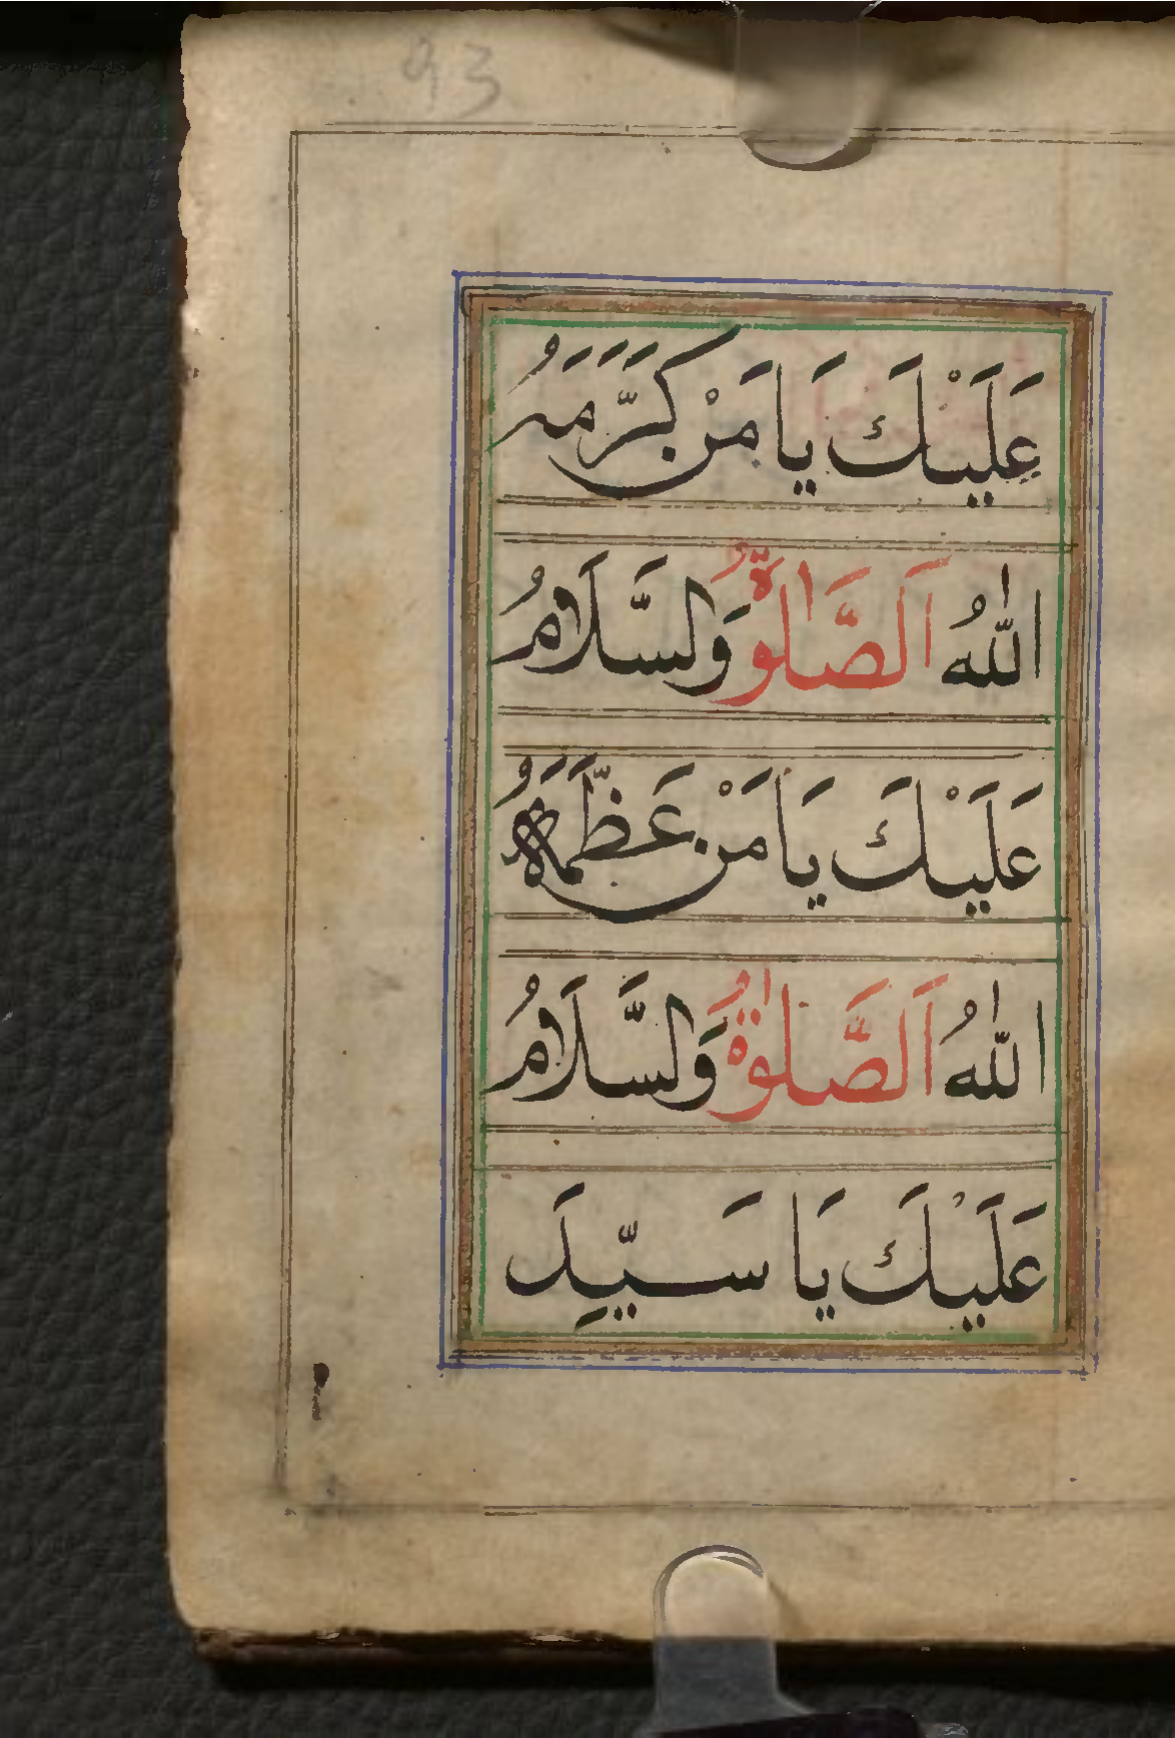 93
عَلَيْكَ يَا مَنْ كَرَّمَهُ
اللّٰهُ اَلصَّلٰوةُ وَلسَّلَامُ
عَلَيْكَ يَا مَنْ عَظَّمَهُ
اللّٰهُ اَلصَّلٰوةُ وَلسَّلَامُ
عَلَيْكَ يَا سَيِّدَ